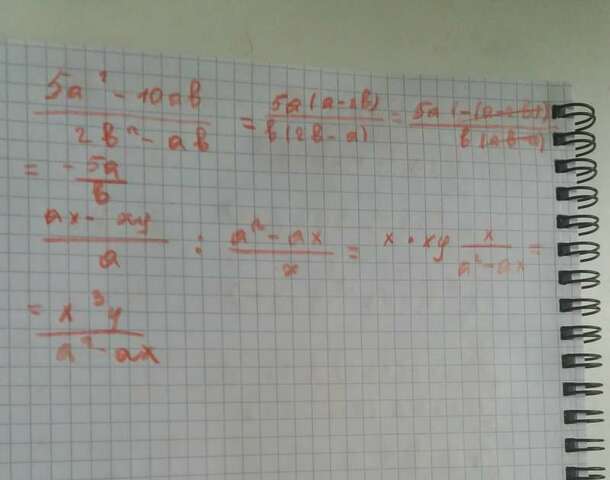 5a² - 10ab / 2b² - ab = 5a(a-2b) / b(2b-a) = 5a(-(a-2b)) / b(2b-a)
= - 5a / b
ax - ay / a : a² - ax / x = x · xy x / a² - ax =
= x³y / a² - ax